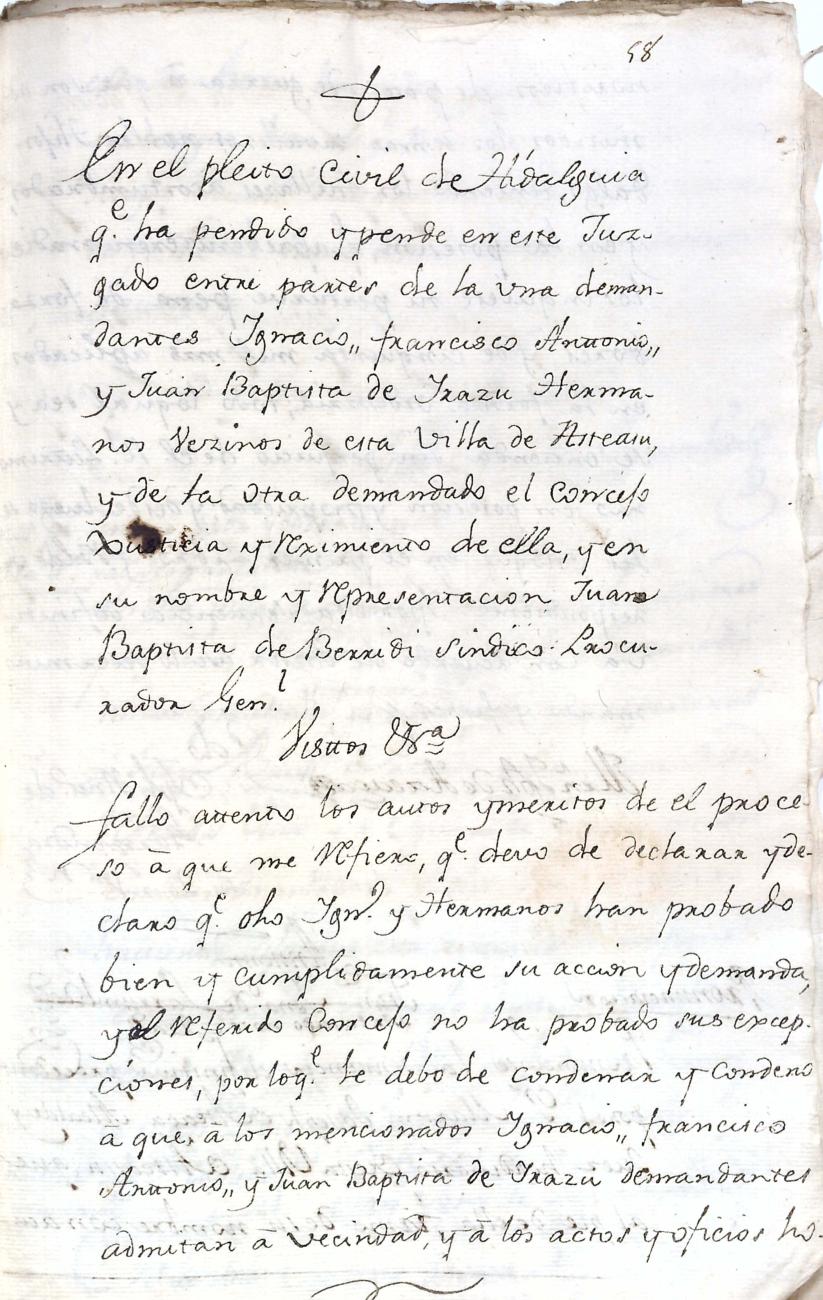 58
En el pleito Civil de Hidalguia
q.e ha pendido y pende en este Juz-
gado entre partes de la vna deman-
dantes Ignacio,, francisco Anttonio,,
y Juan Baptista de Yrazu Herma-
nos Vezinos de esta Villa de Asteasu,
y de la otra demandado el Concejo
Justicia y Reximiento de ella, y en
su nombre y Representacion Juan
Baptista de Berridi sindico Procu-
rador Gen.l
Visttos &a
fallo attento los autos y meritos de el proce-
so à que me Refiero, q.e devo de declarar y de-
claro q.e dho Ign.o y Hermanos han probado
bien y cumplidamente su accion y demanda,
y el Referido Concejo no ha probado sus excep-
ciones, por loq.e le debo de condenar y condeno
à que, à los mencionados Ignacio,, francisco
Anttonio,, y Juan Baptista de Yrazu demandantes
admitan à vecindad, y à los actos y oficios ho-